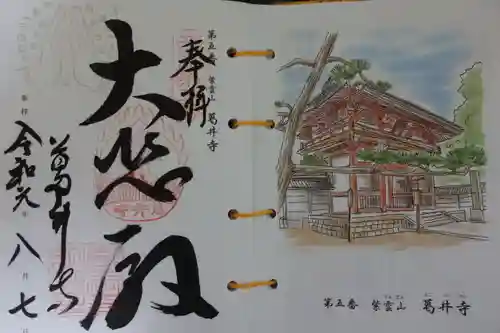 奉拝
第五番 紫雲山 葛井寺
大悲殿
葛井寺
奉拝 令和元年八月七日
第五番 紫雲山 葛井寺